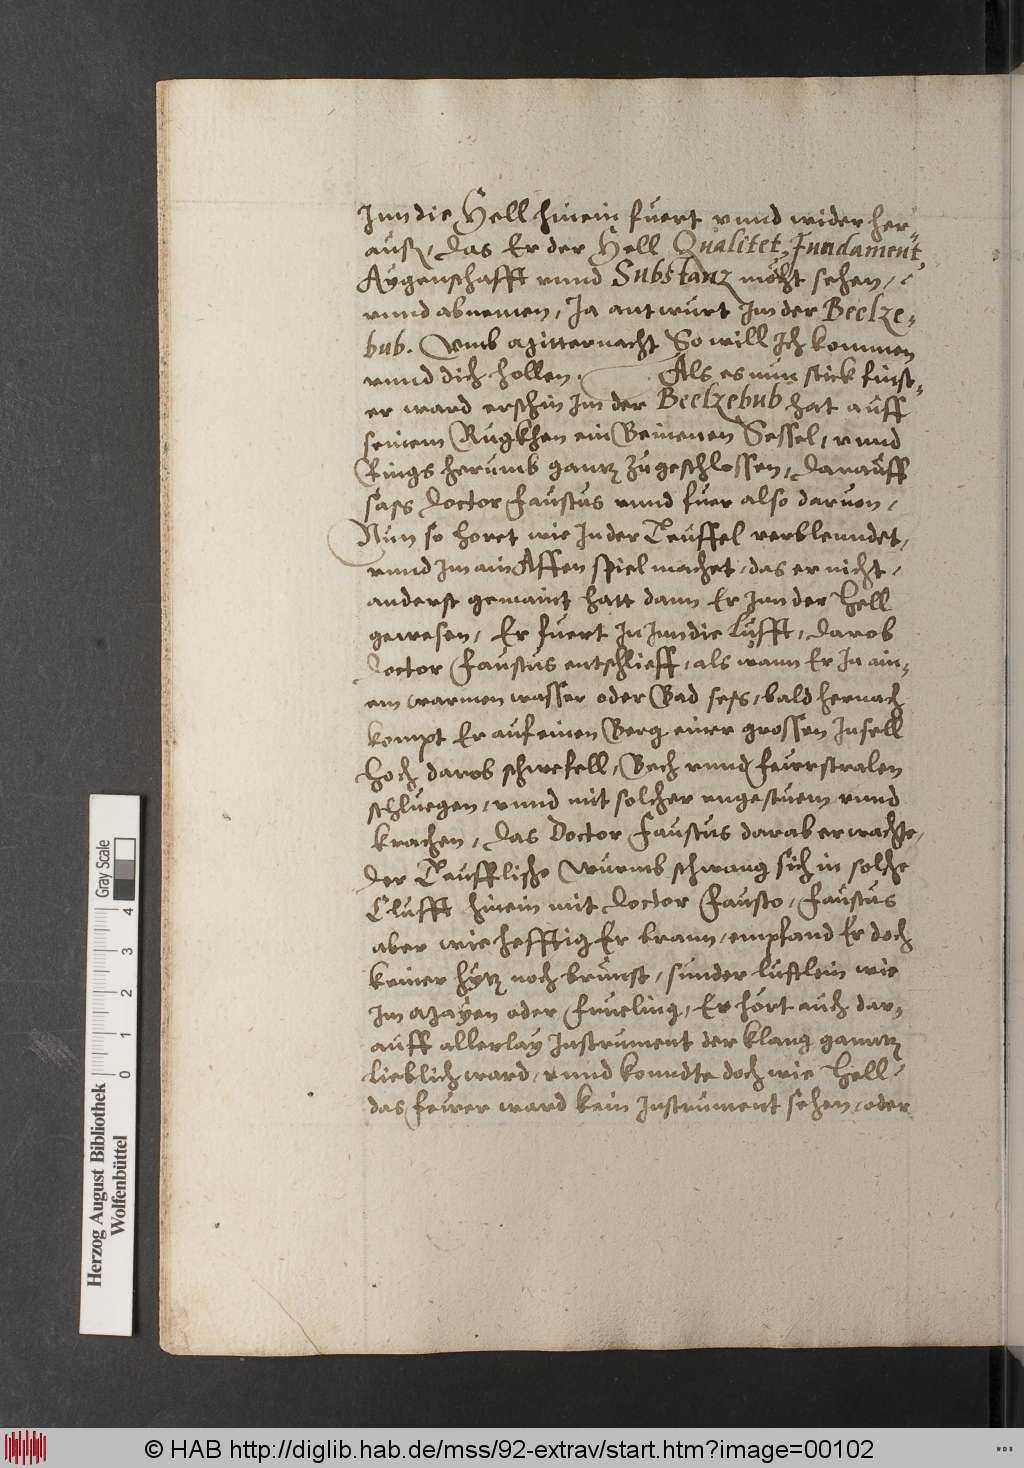 Inn die Hell hinein fuert vnnd wider her-
auß, das Er der Hell Qualitet, Fundament,
Aygenschafft vnnd Substanz möcht sehen,
vnnd abnemen, Ja antwurt Im der Beelze-
bub. Vmb Mitternacht So will Ich kommen
vnnd dich hollen. Als es nun stick finst-
er ward erschin Im der Beelzebub hat auff
seinem Rugkhen ein Beinenen Sessel, vnnd
Rings herumb gantz zugeschlossen, darauff
sass Doctor Faustus vnnd fuer also daruon,
Nun so horet wie In der Teuffel verblenndet,
vnnd Im ain Affen spiel machet, das er nicht
anderst gemaint hatt dann Er Inn der Hell
gewesen, Er fuert In Inn die Lufft, darob
Doctor Faustus entschlieff, als wann Er In ain-
em warmen wasser oder Bad sess, bald hernach
kompt Er auf einen Berg einer grossen Insell
hoch darob schwefell, Bech vnnd fewrstralen
schluegen, vnnd mit solcher vngestuem vnnd
krachen, Das Doctor Faustus darab erwachte,
der Teufflische Wurmb schwang sich in solche
Clufft hinein mit Doctor Fausto, Faustus
aber wie hefftig Er brann, empfand Er doch
keiner hytz noch brunst, sunder lüftlein wie
Im Mayen oder Frueling, Er hört auch dar-
auff allerlay Instrument der klang ganntz
lieblich ward, vnnd konndte doch wie Hell
das fewer ward kein Instrument sehen, oder
Herzog August Bibliothek
Wolfenbüttel
Gray Scale
0 1 2 3 4
© HAB http://diglib.hab.de/mss/92-extrav/start.htm?image=00102